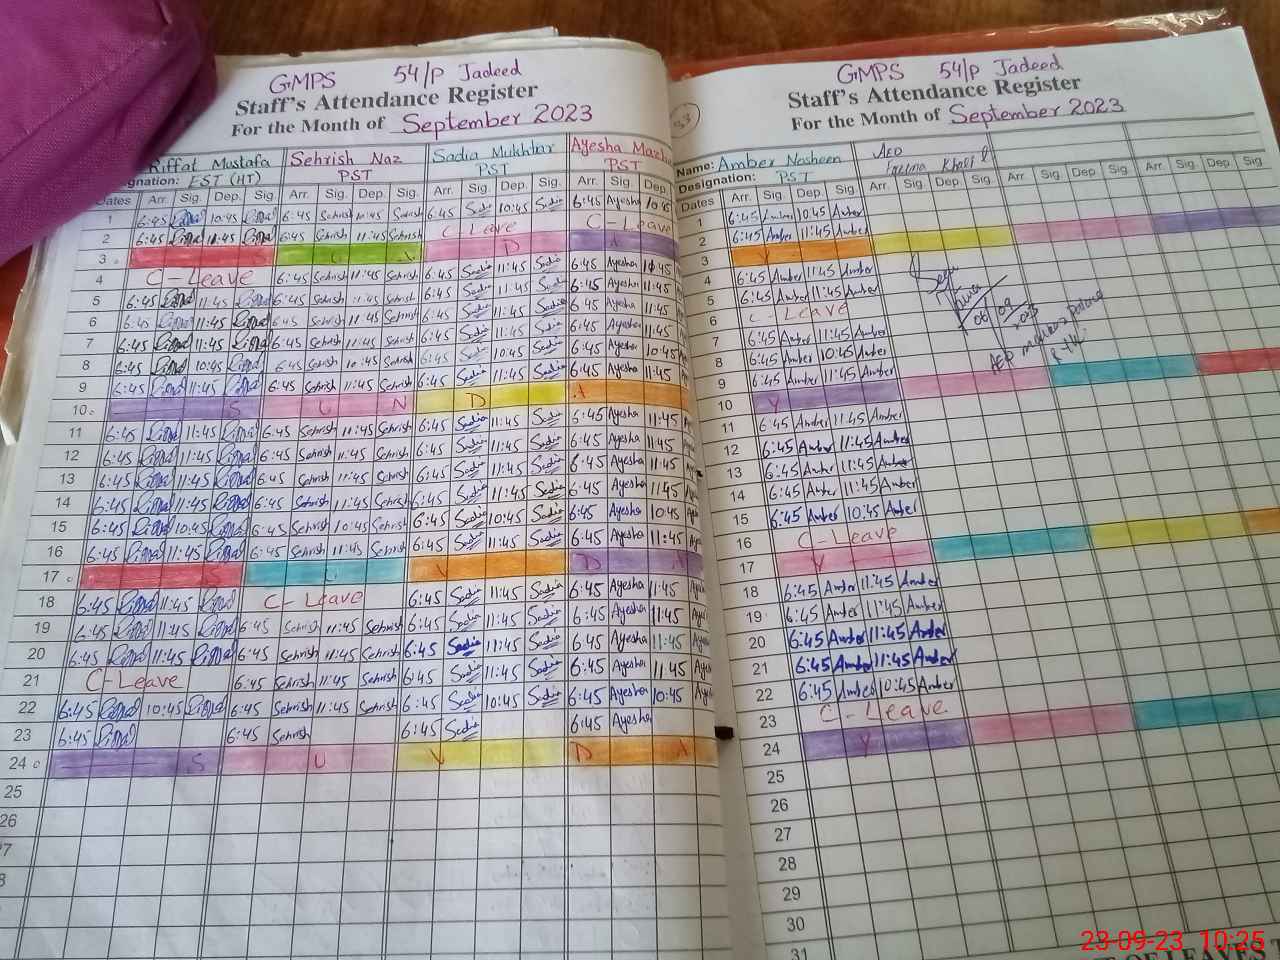 GMPS 54/P Jadeed
Staff's Attendance Register
For the Month of September 2023
Riffat Mustafa Sehrish Naz Sadia Mukhtar Ayesha
gnation: EST (HT) PST PST PST
Dates Arr. Sig. Dep. Sig. Arr. Sig. Dep. Sig. Arr. Sig. Dep. Sig. Arr. Sig. Dep.
1 6:45 10:45 6:45 Sehrish 10:45 Sehrish 6:45 Sadia 10:45 Sadia 6:45 Ayesha 10:45
2 6:45 11:45 6:45 Sehrish 11:45 Sehrish C-Leave C-Leave
3 S U N D A
4 C-Leave 6:45 Sehrish 11:45 Sehrish 6:45 Sadia 11:45 Sadia 6:45 Ayesha
5 6:45 11:45 6:45 Sehrish 11:45 Sehrish 6:45 Sadia 11:45 Sadia 6:45 Ayesha 11:45
6 6:45 11:45 6:45 Sehrish 11:45 Sehrish 6:45 Sadia 11:45 Sadia 6:45 Ayesha 11:45
7 6:45 11:45 6:45 Sehrish 11:45 Sehrish 6:45 Sadia 11:45 Sadia 6:45 Ayesha 11:45
8 6:45 10:45 6:45 Sehrish 10:45 Sehrish 6:45 Sadia 10:45 Sadia 6:45 Ayesha 10:45
9 6:45 11:45 6:45 Sehrish 11:45 Sehrish 6:45 Sadia 11:45 Sadia 6:45 Ayesha 11:45
10 S U N D A
11 6:45 11:45 6:45 Sehrish 11:45 Sehrish 6:45 Sadia 11:45 Sadia 6:45 Ayesha 11:45
12 6:45 11:45 6:45 Sehrish 11:45 Sehrish 6:45 Sadia 11:45 Sadia 6:45 Ayesha 11:45
13 6:45 11:45 6:45 Sehrish 11:45 Sehrish 6:45 Sadia 11:45 Sadia 6:45 Ayesha 11:45
14 6:45 11:45 6:45 Sehrish 11:45 Sehrish 6:45 Sadia 11:45 Sadia 6:45 Ayesha 11:45
15 6:45 10:45 6:45 Sehrish 10:45 Sehrish 6:45 Sadia 10:45 Sadia 6:45 Ayesha 10:45
16 6:45 11:45 6:45 Sehrish 11:45 Sehrish 6:45 Sadia 11:45 Sadia 6:45 Ayesha 11:45
17 S U N D A
18 6:45 11:45 C-Leave 6:45 Sadia 11:45 Sadia 6:45 Ayesha 11:45
19 6:45 11:45 6:45 Sehrish 11:45 Sehrish 6:45 Sadia 11:45 Sadia 6:45 Ayesha 11:45
20 6:45 11:45 6:45 Sehrish 11:45 Sehrish 6:45 Sadia 11:45 Sadia 6:45 Ayesha 11:45
21 C-Leave 6:45 Sehrish 11:45 Sehrish 6:45 Sadia 11:45 Sadia 6:45 Ayesha 11:45
22 6:45 10:45 6:45 Sehrish 11:45 Sehrish 6:45 Sadia 10:45 Sadia 6:45 Ayesha 10:45
23 6:45 6:45 Sehrish 6:45 Sadia 6:45 Ayesha
24 S U N D A
25
26
GMPS 54/P Jadeed
Staff's Attendance Register
For the Month of September 2023
Name: Amber Nosheen AEO
Designation: PST
Dates Arr. Sig. Dep. Sig. Arr. Sig. Dep. Sig. Arr. Sig. Dep. Sig. Arr. Sig. Dep. Sig.
1 6:45 Amber 10:45 Amber
2 6:45 Amber 11:45 Amber
3 Y
4 6:45 Amber 11:45 Amber
5 6:45 Amber 11:45 Amber
6 C-Leave
7 6:45 Amber 11:45 Amber
8 6:45 Amber 10:45 Amber
9 6:45 Amber 11:45 Amber
10 Y
11 6:45 Amber 11:45 Amber
12 6:45 Amber 11:45 Amber
13 6:45 Amber 11:45 Amber
14 6:45 Amber 11:45 Amber
15 6:45 Amber 10:45 Amber
16 C-Leave
17 Y
18 6:45 Amber 11:45 Amber
19 6:45 Amber 11:45 Amber
20 6:45 Amber 11:45 Amber
21 6:45 Amber 11:45 Amber
22 6:45 Amber 10:45 Amber
23 C-Leave
24 Y
25
26
27
28
29
30
31
06/09
2023
AEO
23-09-23 10:25